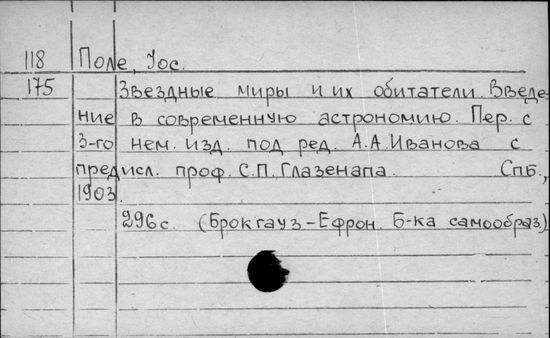 118 Поле, Иос.
175 Звездные миры и их обитатели. Введе-
ние в современную астрономию. Пер. с
3-го нем. изд. под ред. А.А. Иванова с
предисл. проф. С.П. Глазенапа. Спб.,
1903.
296 с. (Брокгауз-Ефрон. Б-ка самообраз.)